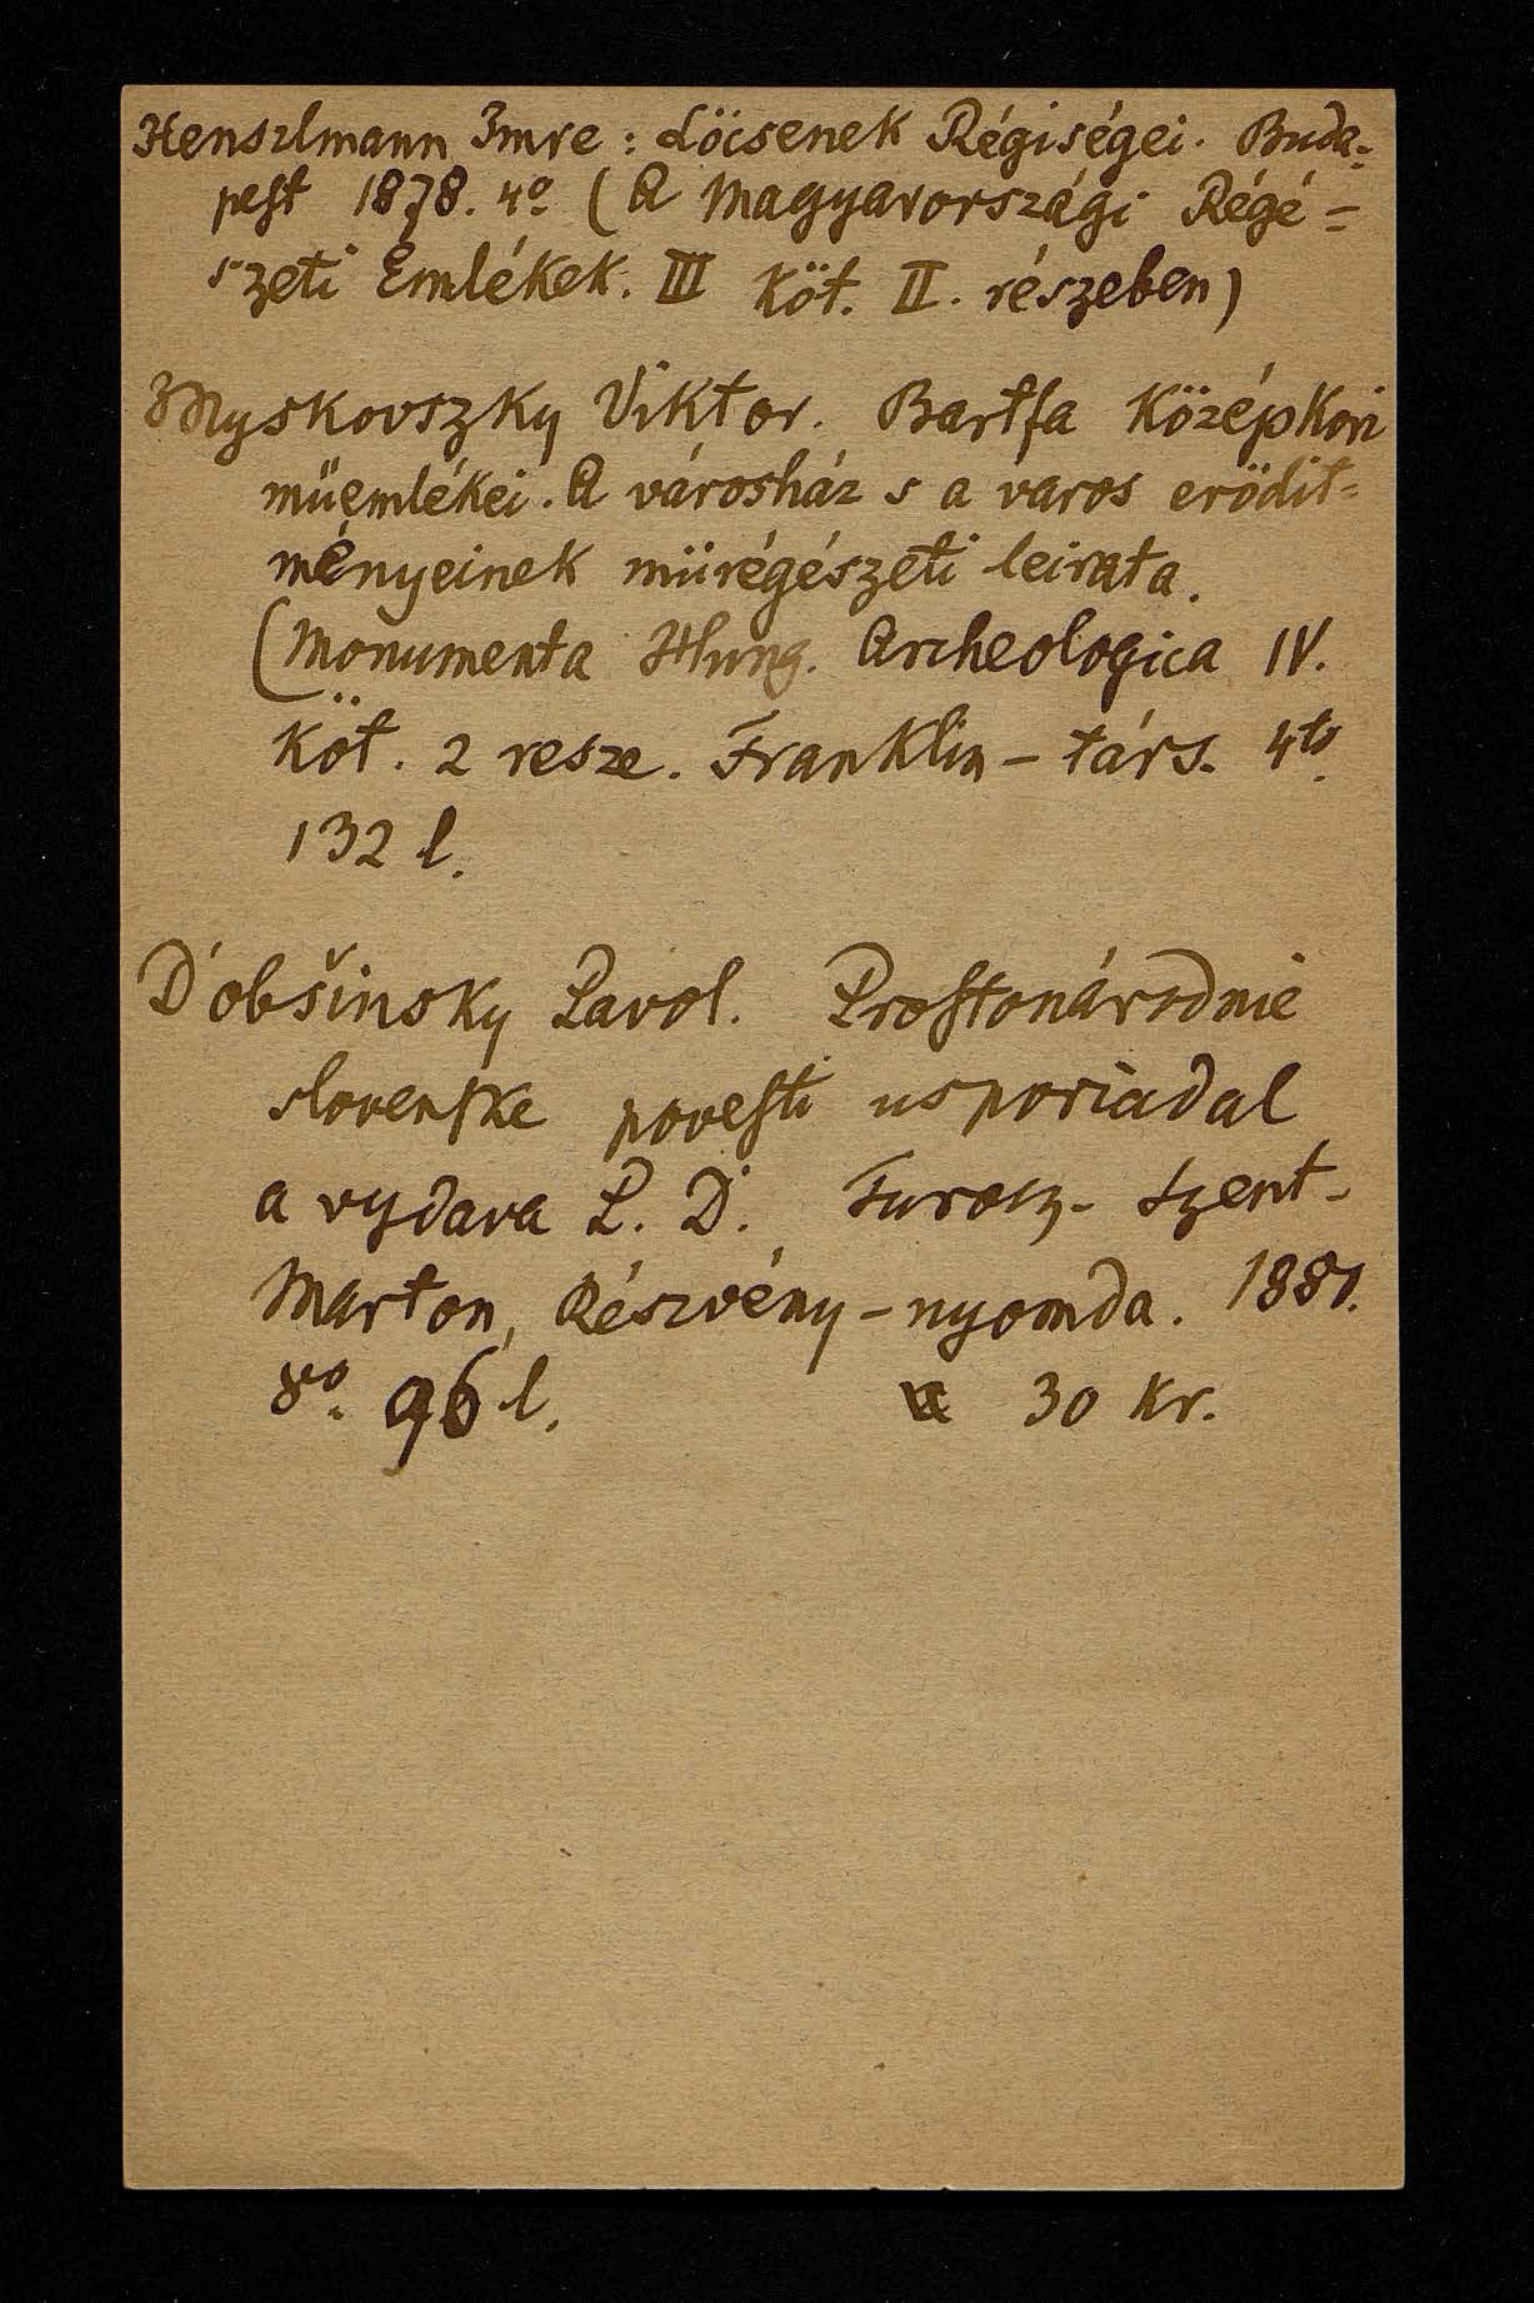 Henszlmann Imre: Löcsenek Régiségei. Buda-
pest 1878. 4º (A Magyarországi Régé=
szeti Emlékek. III Köt. II. részeben)
Myskovszky Viktor. Bartfa Középkori
müemlékei. A városház s a varos erödit=
ményeinek mürégészeti leirata.
(Monumenta Hung. Archeologica IV.
Köt. 2 resze. Franklin-társ. 4to.
132 l.
Dobšinsky Pavol. Prostonárodnie
slovenske povesti usporiadal
a vydava P. D. Turocz-Szent-
Marton, Részvény-nyomda. 1880.
8º. 96 l. 30 Kr.